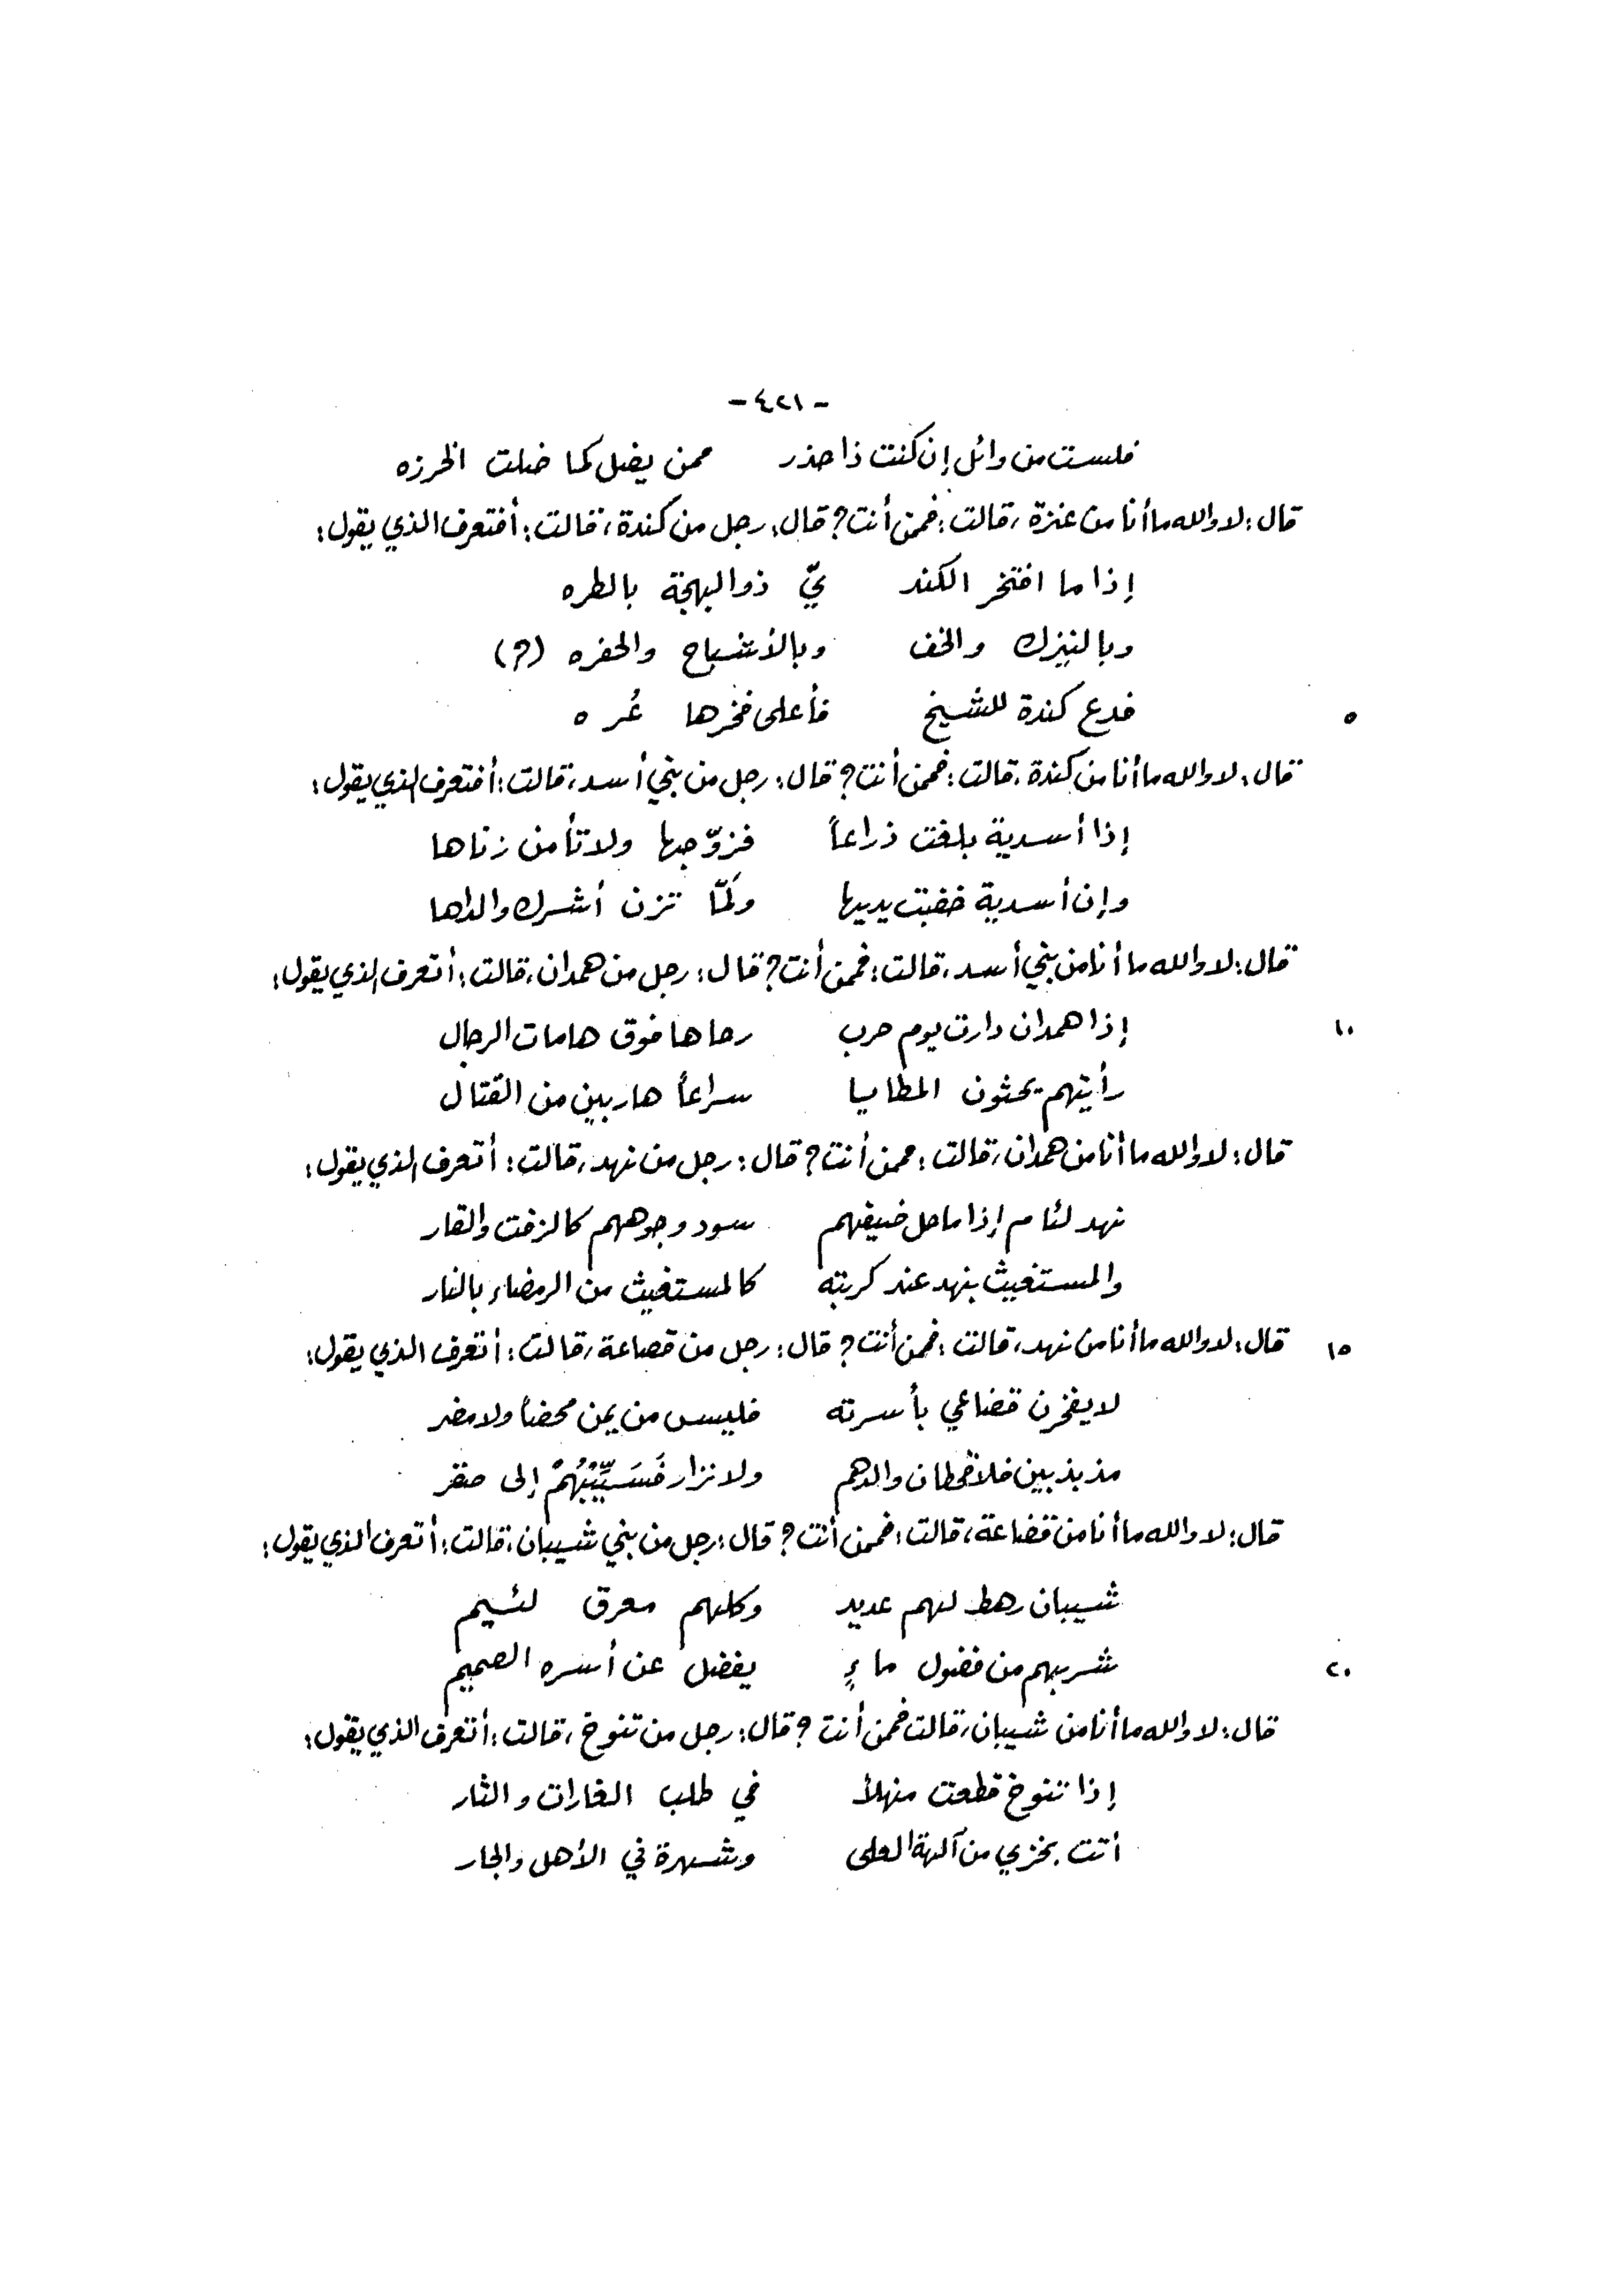 - ٤٢١ -
فلست من وائل إن كنت ذا حذر ممن يضل كما ضلت الخرزه
قال: لا والله ما أنا من عنزة، قالت: فممن أنت؟ قال: رجل من كندة، قالت: أفتعرف الذي يقول:
إذا ما افتخر الكند يّ ذو البهجة بالطره
وبالنيزك والخف وبالأشباح والحفره (؟)
٥ فدع كندة للشيخ فأعلى فخرها عُره
قال: لا والله ما أنا من كندة، قالت: فممن أنت؟ قال: رجل من بني أسد، قالت: أفتعرف الذي يقول:
إذا أسدية بلغت ذراعاً فزوّجها ولا تأمن زناها
وإن أسدية خضبت يديها ولَمّا تزن أشرك والداها
قال: لا والله ما أنا من بني أسد، قالت: فممن أنت؟ قال: رجل من همدان، قالت: أتعرف الذي يقول:
١٠ إذا همدان دارت يوم حرب رحاها فوق هامات الرجال
رأيتهم يحثون المطايا سراعاً هاربين من القتال
قال: لا والله ما أنا من همدان، قالت: ممن أنت؟ قال: رجل من نهد، قالت: أتعرف الذي يقول:
نهد لئام إذا ما حل ضيفهم سود وجوههم كالزفت والقار
والمستغيث بنهد عند كربته كالمستغيث من الرمضاء بالنار
١٥ قال: لا والله ما أنا من نهد، قالت: فممن أنت؟ قال: رجل من قصاعة، قالت: أتعرف الذي يقول:
لا يفخرن قضاعي بأسرته فليس من يمن محضاً ولا مضر
مذبذبين فلا قحطان والدهم ولا نزار فَسَيِّبْهُمْ إلى صقر
قال: لا والله ما أنا من قضاعة، قالت: فممن أنت؟ قال: رجل من بني شيبان، قالت: أتعرف الذي يقول:
شيبان رهط لهم عديد وكلهم معرق لئيم
٢٠ شربهم من فضول ماءٍ يفضل عن أسره الصميم
قال: لا والله ما أنا من شيبان، قالت فممن أنت؟ قال: رجل من تنوخ، قالت: أتعرف الذي يقول:
إذا تنوخ قطعت منهلاً في طلب الغارات والثار
أتت بخزي من آلهة العلى وشهرة في الأهل والجار